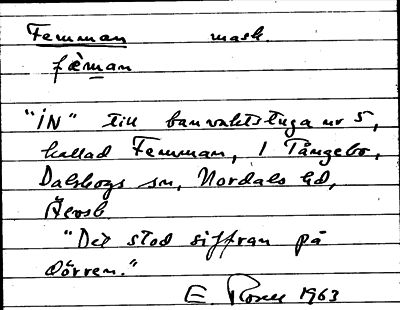 Femman mask.
fæman
"IN" till banvaktstuga nr 5,
kallad Femman, i Tångebo,
Dalskogs sn, Nordals hd,
Älvsb
"Det stod siffran på
dörren."
E. Rosell 1963